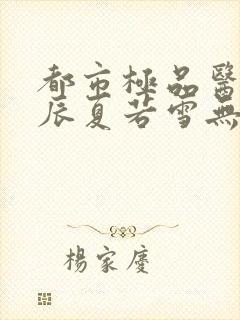 都市極品醫
辰夏若雪無
楊家慶